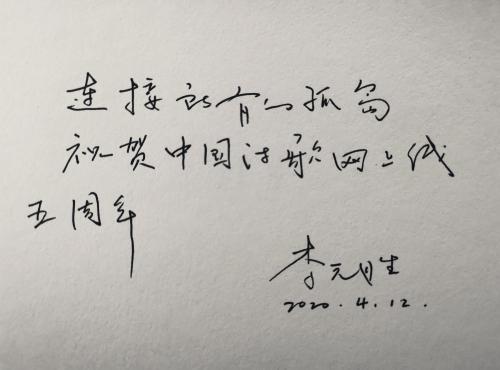 连接所有的孤岛
祝贺中国诗歌网上线
五周年
李元胜
2020.4.12.